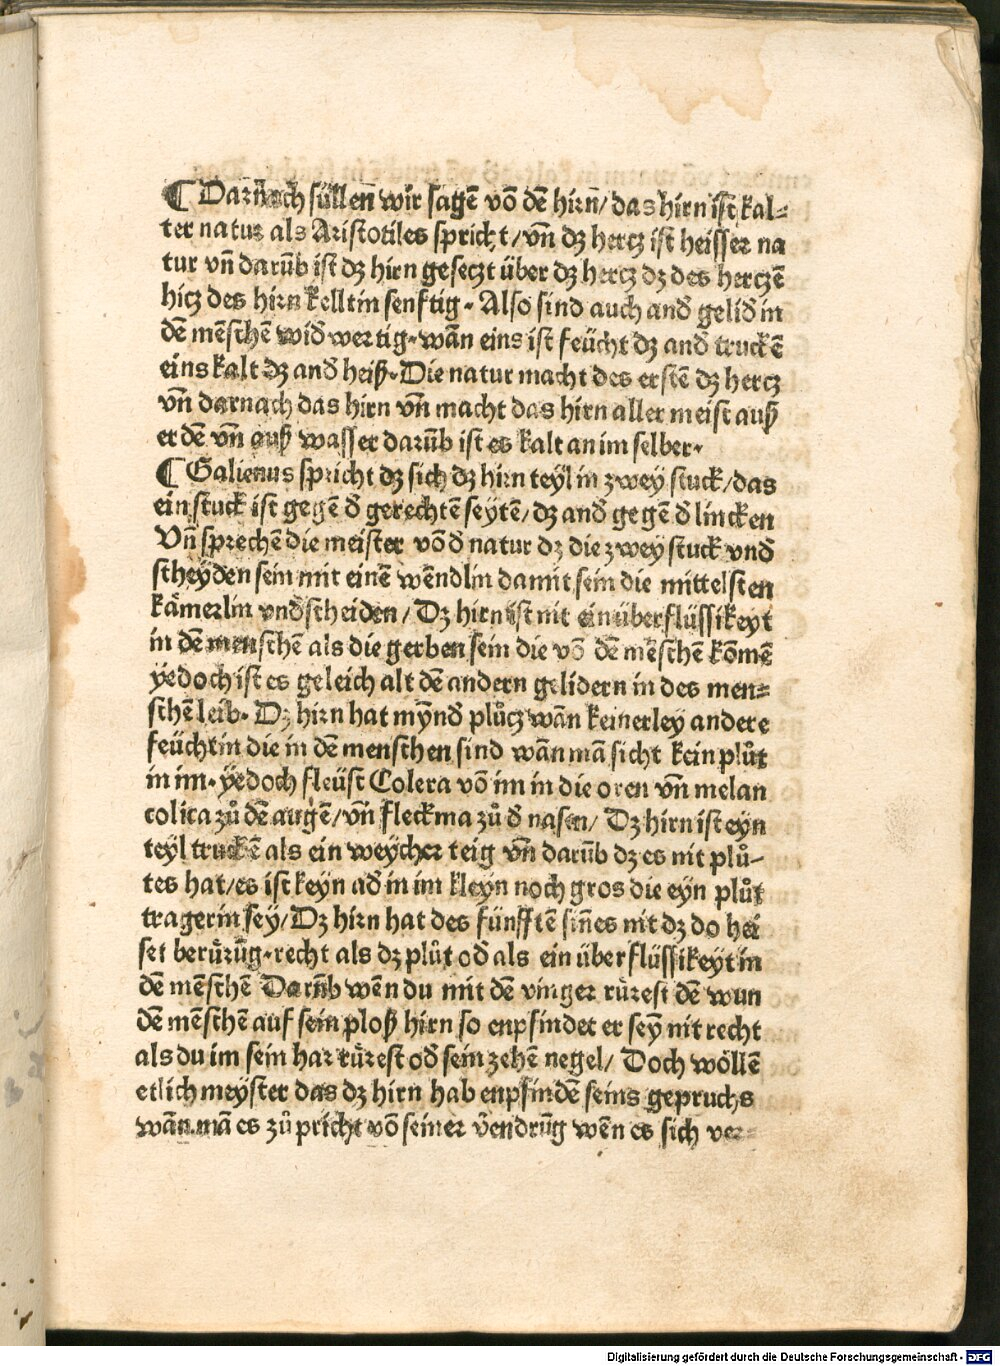 ¶ Darnach süllen̄ wir sagē vō dē hirn̄/ das hirn ist kal⸗
ter natur als Aristotiles spricht/ vn̄ dz hertz ist heisser na
tur vn̄ darūb ist dz hirn gesetzt über dz hertz dz des hertzē
hitz des hirn kelltin senftig. Also sind auch and̄ gelid̄ in
dē mēschē wid̄wertig. wān eins ist feücht dz and̄ truckē
eins kalt dz and̄ heiß. Die natur macht des erstē dz hertz
vn̄ darnach das hirn vn̄ macht das hirn aller meist auß
erdē vn̄ auß wasser darūb ist es kalt an im selber.
¶ Galienus spricht dz sich dz hirn teyl in zwey stuck/ das
ein stuck ist gegē d̄ gerechtē seytē/ dz and̄ gegē d̄ lincken
Vn̄ sprechē die meister vō d̄ natur dz die zwey stuck vnd̄
scheyden sein mit einē wēndlin damit sein die mittelsten
kåmerlin vnd̄scheiden/ Dz hirn ist nit ein überflüssikeyt
in dē menschē als die gerben sein die vō dē mēschē kōmē
yedoch ist es geleich alt dē andern gelidern in des men⸗
schē leib. Dz hirn hat mynd̄ plůtz wān keinerley andere
feüchtin die in dē menschen sind wān mā sicht kein plůt
in im. yedoch fleüst Colera vō im in die oren vn̄ melan
colica zů dē augē/ vn̄ fleckma zů d̄ nasen/ Dz hirn ist eyn
teyl truckē als ein weycher teig vn̄ darūb dz es nit plů-
tes hat/ es ist keyn ad̄ in im kleyn noch gros die eyn plůt
tragerin sey/ Dz hirn hat des fünfftē sin̄es nit dz do hei
set berürūg. recht als dz plůt od̄ als ein überflüssikeyt in
dē mēschē Darūb wen du mit dē vinger rürest dē wun
dē mēschē auf sein ploß hirn so enpfindet er sey nit recht
als du im sein har rürest od̄ sein zehē negel/ Doch wöllē
etlich meyster das dz hirn hab enpfindē seins gepruchs
wān mā es zů pricht vō seiner v̈endrūg wēn es sich ver⸗
Digitalisierung gefördert durch die Deutsche Forschungsgemeinschaft - DFG